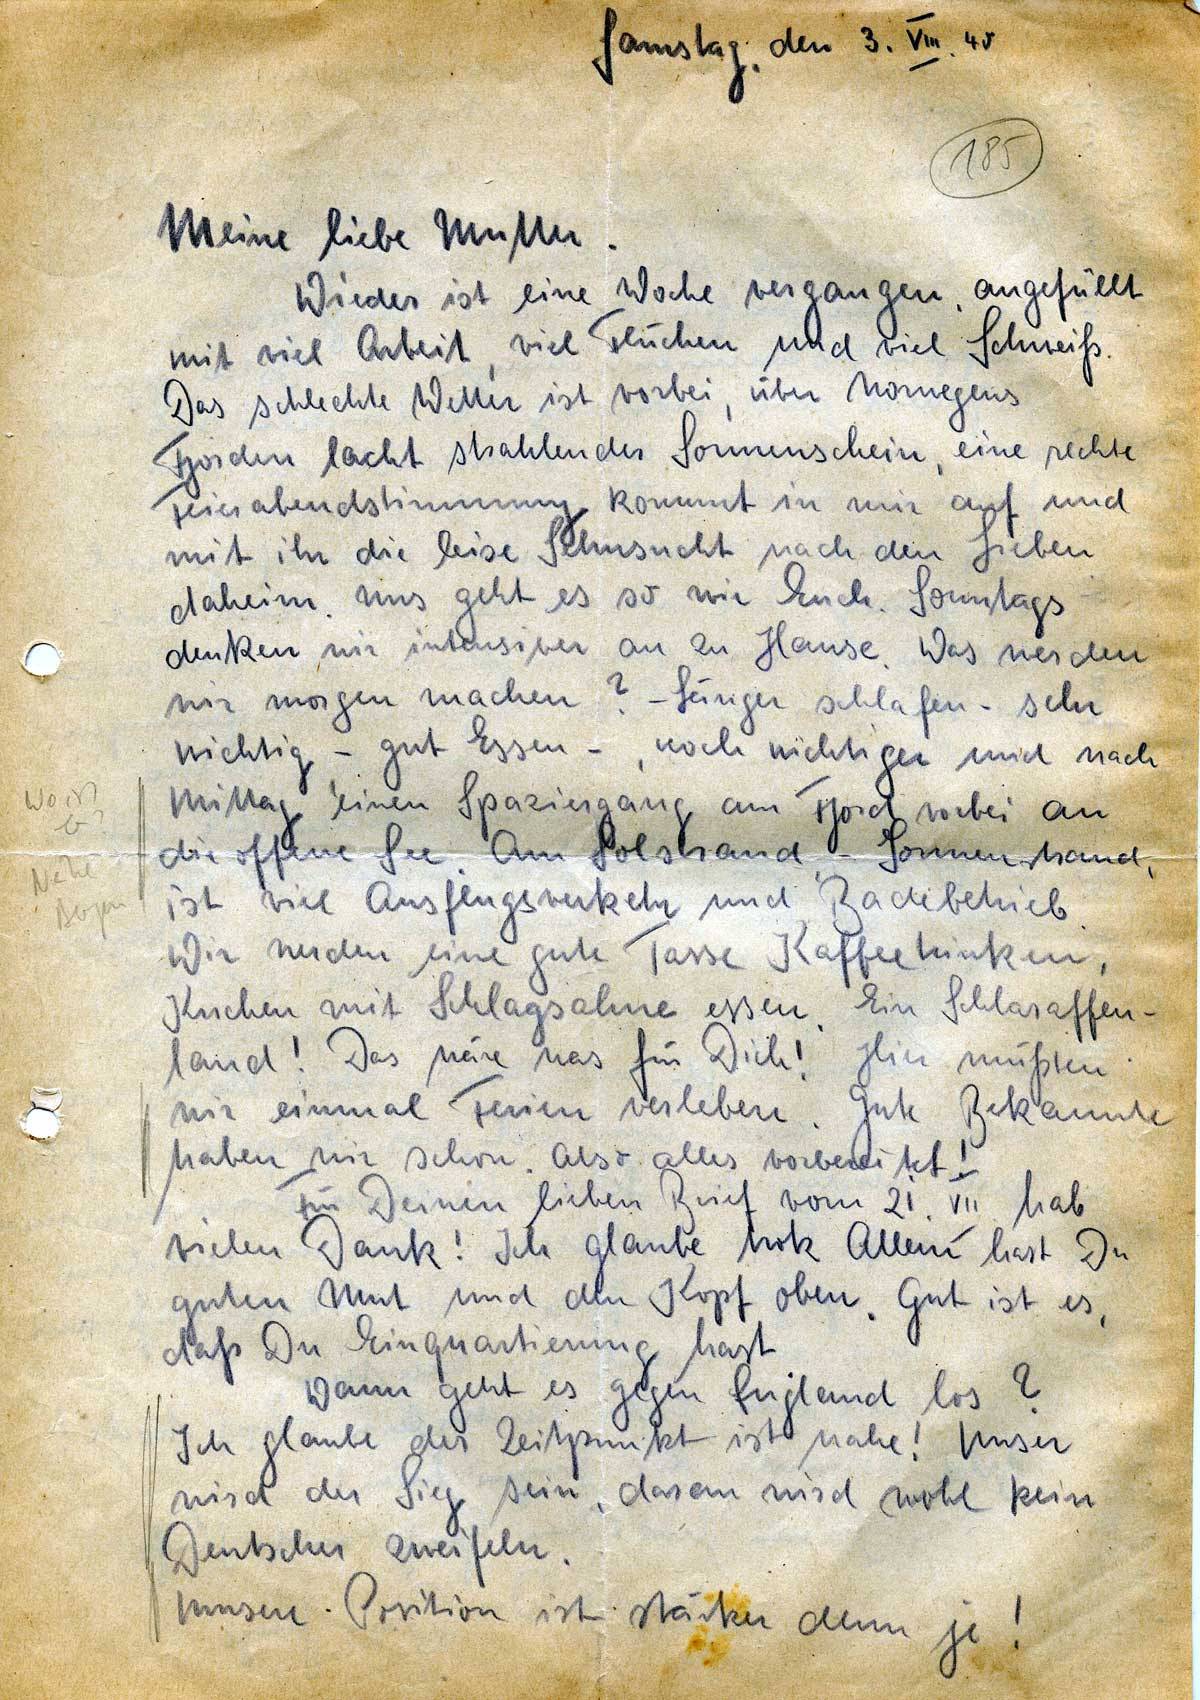 Samstag, den 3. VIII. 40
185
Meine liebe Mutter.
Wieder ist eine Woche vergangen, angefüllt
mit viel Arbeit, viel Flüchen und viel Schweiß.
Das schlechte Wetter ist vorbei, über Norwegens
Fjorden lacht strahlender Sonnenschein, eine rechte
Feierabendstimmung kommt in mir auf und
mit ihr die leise Sehnsucht nach den Lieben
daheim. Uns geht es so wie Euch. Sonntags
denken wir intensiver an zu Hause. Was werden
wir morgen machen? – Länger schlafen – sehr
wichtig – gut Essen –, noch wichtiger und nach
Mittag einen Spaziergang am Fjord vorbei an
die offene See. Am Solstrand – Sonnenstrand,
ist viel Ausflugsverkehr und Badebetrieb.
Wir werden eine gute Tasse Kaffee trinken,
Kuchen mit Schlagsahne essen. Ein Schlaraffen-
land! Das wäre was für Dich! Hier müßten
wir einmal Ferien verleben. Gute Bekannte
haben wir schon. Also alles vorbereitet!
Für Deinen lieben Brief vom 21. VII. hab
vielen Dank! Ich glaube trotz Allem hast Du
guten Mut und den Kopf oben. Gut ist es,
daß Du Einquartierung hast
Wann geht es gegen England los?
Ich glaube der Zeitpunkt ist nahe! Unser
wird der Sieg sein, daran wird wohl kein
Deutscher zweifeln.
Unsere Position ist stärker denn je!
Wo ist
Nähe
Bergen